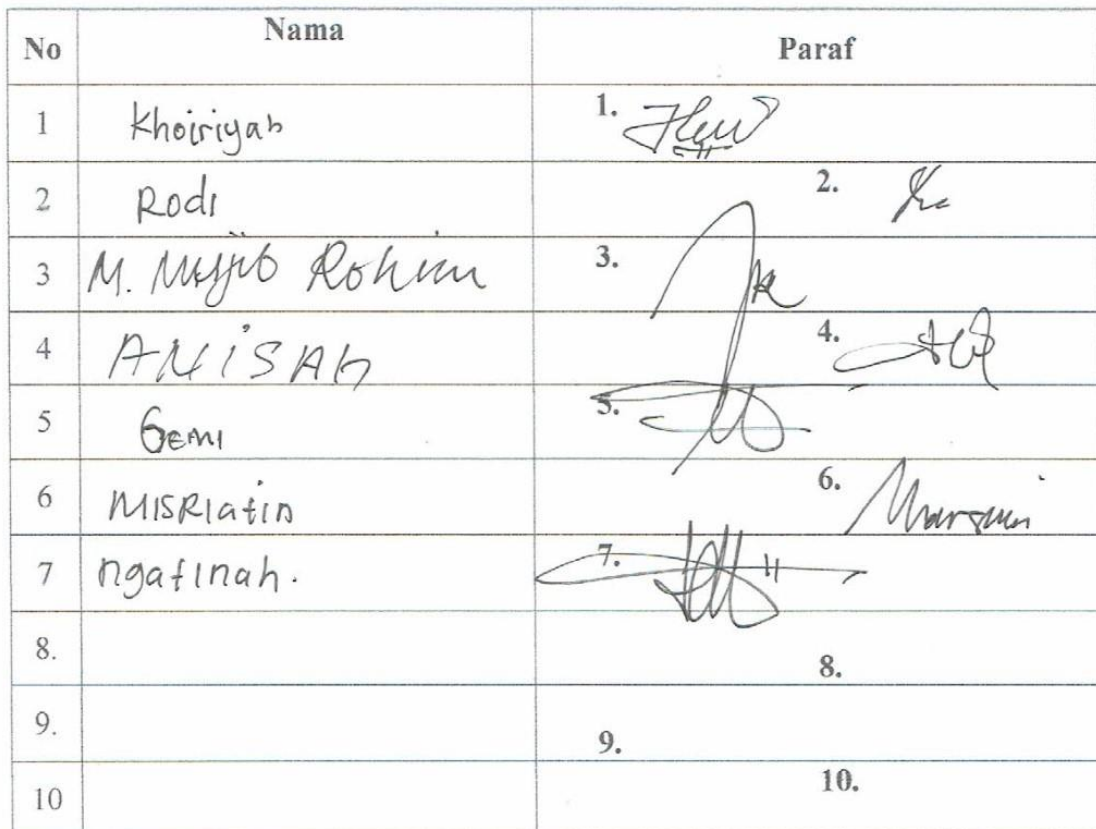 No Nama Paraf
1 Khoiriyah 1.
2 Rodi 2.
3 M. Mujib Rohim 3.
4 ANISAh 4.
5 Gemi 5.
6 MISRIatin 6.
7 ngatinah. 7.
8. 8.
9. 9.
10 10.